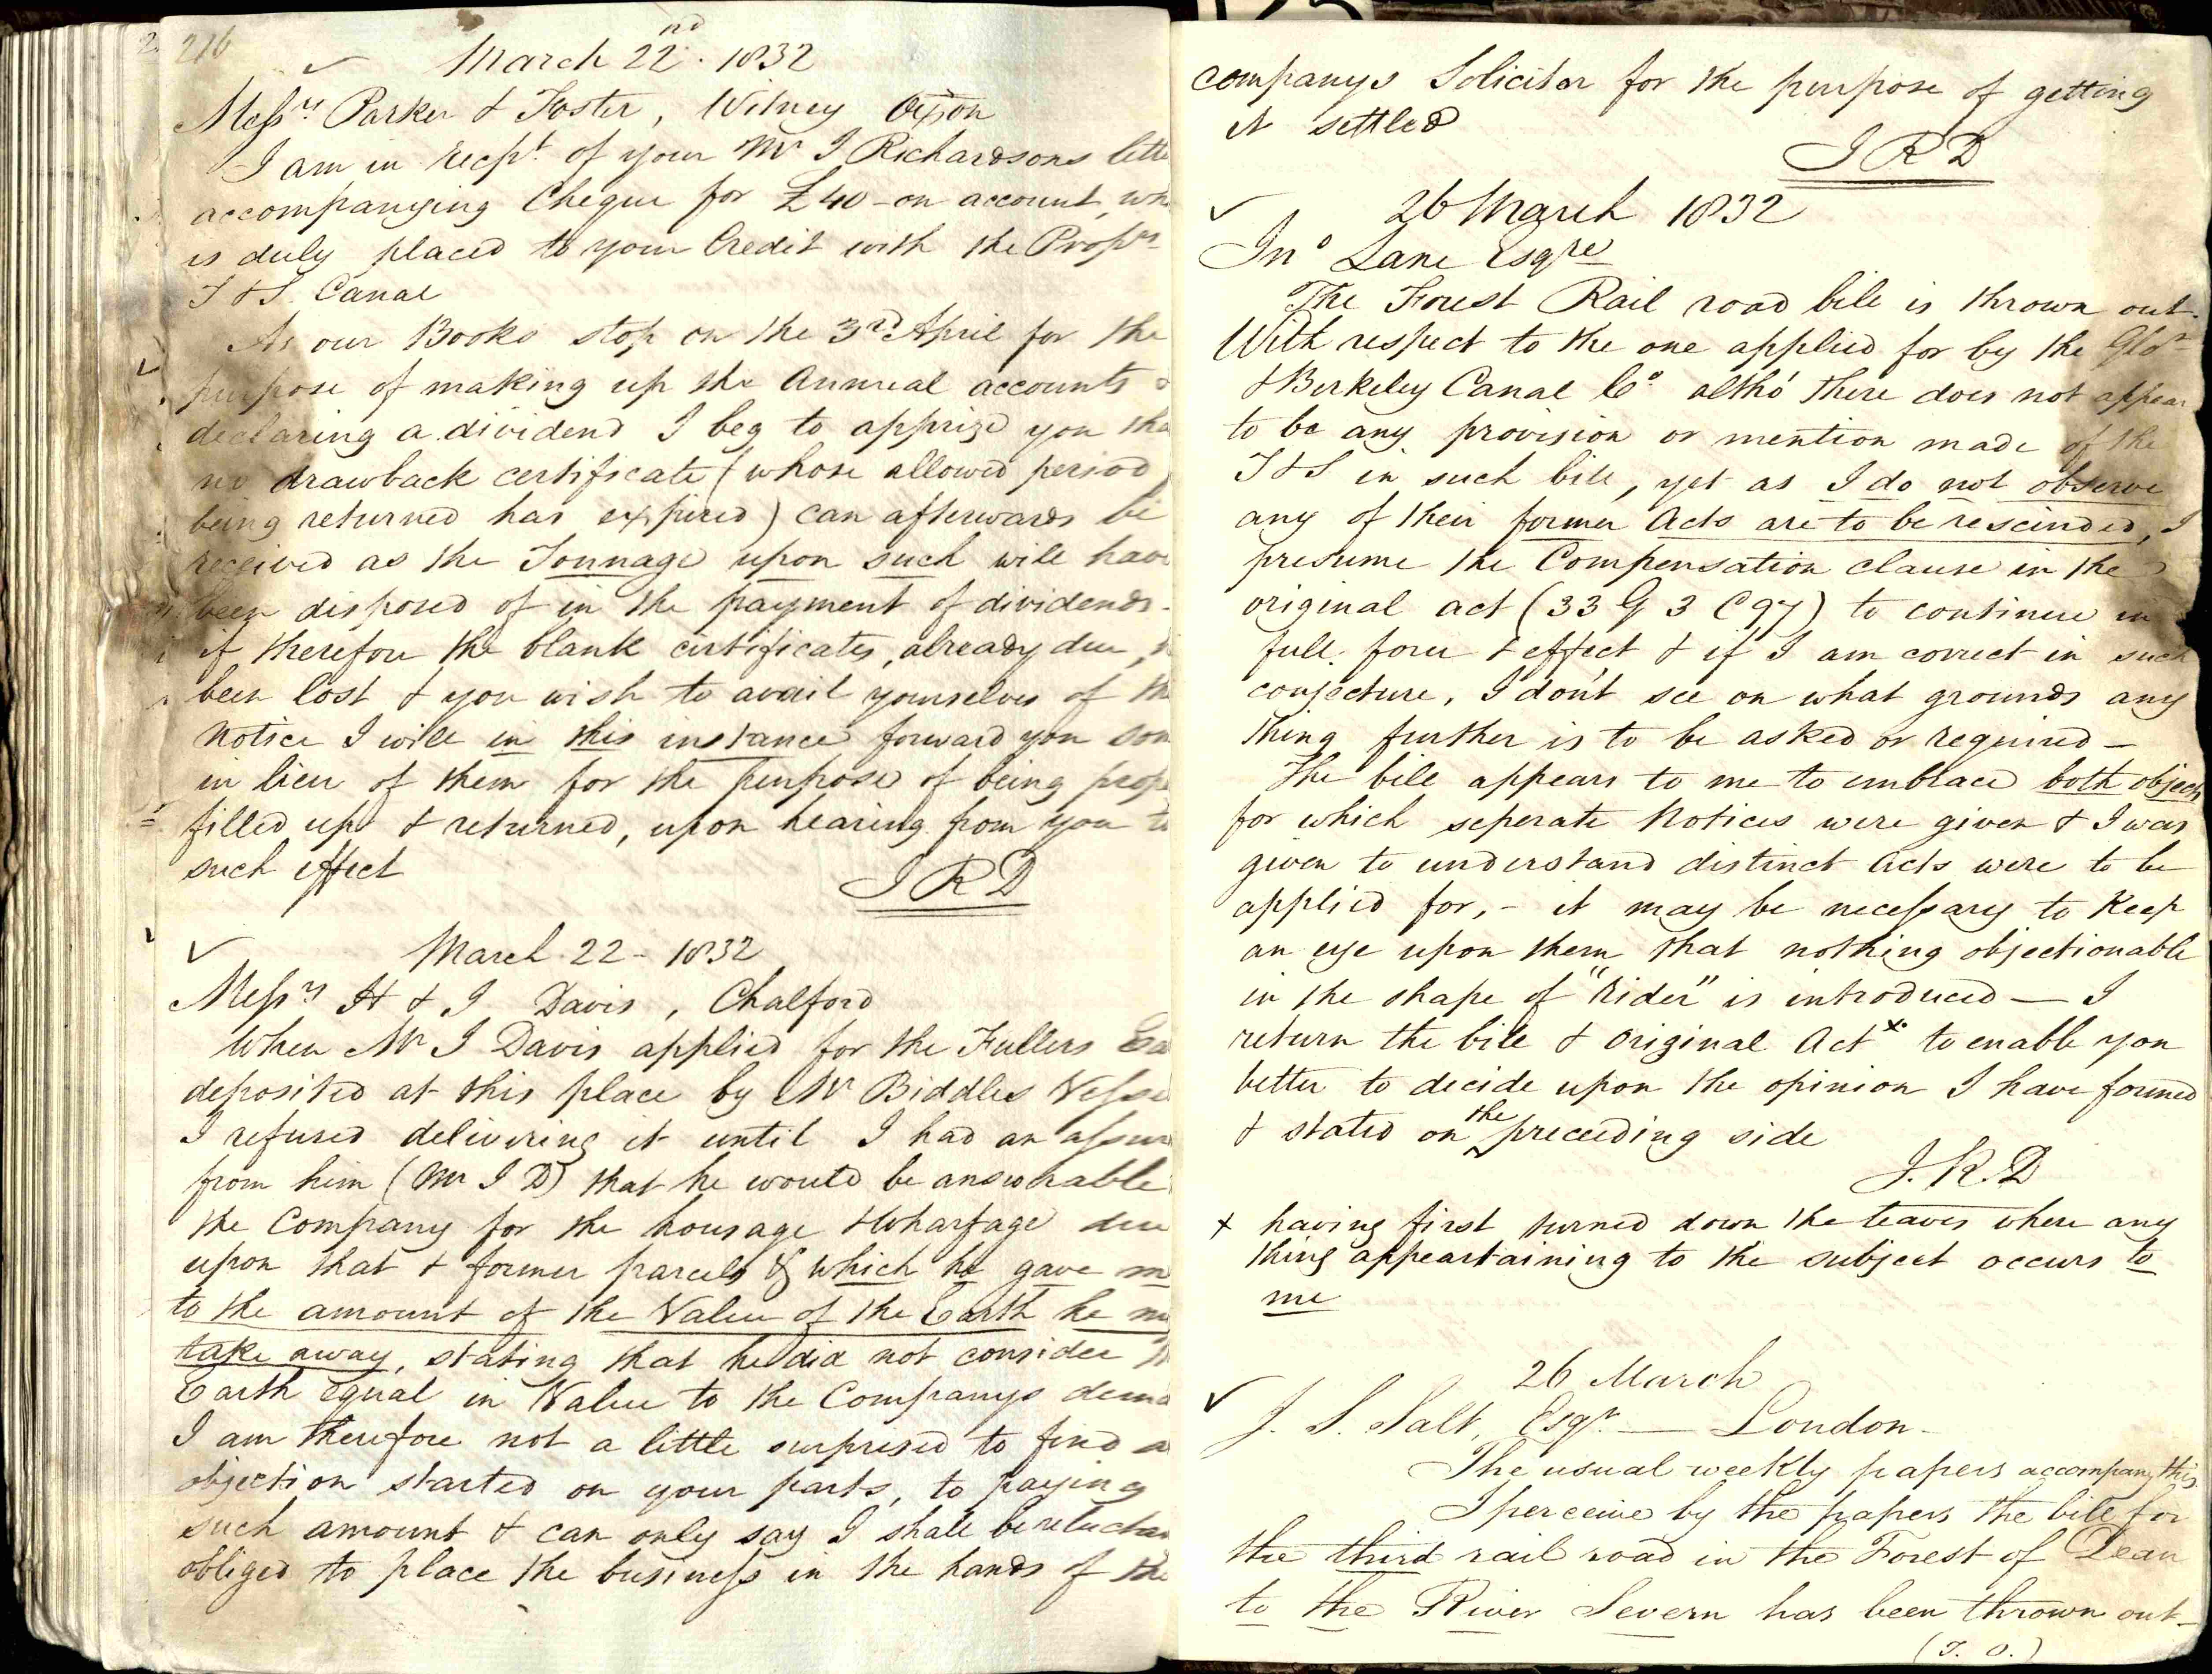 216
March 22nd. 1832
Messrs Parker & Foster, Witney Oxon
I am in recpt. of your Mr I Richardsons
accompanying Cheque for £40 - on account,
is duly placed to your Credit with the Proprs
T & S. Canal
As our Books stop on the 3rd April for the
purpose of making up the Annual accounts &
declaring a dividend I beg to apprize you
no drawback certificate (whose allowed period
being returned has expired) can afterwards be
received as the Tonnage upon such will
been disposed of in the payment of dividends -
if therefore the blank certificates, already due,
been lost & you wish to avail yourselves of
Notice I will in this instance forward you
in lieu of them for the purpose of being
filled up & returned, upon hearing from you to
such effect
I R D
March 22 - 1832
Messrs H & I Davis, Chalford
When Mr I Davis applied for the Fullers
deposited at this place by Mr Biddles
I refused delivering it until I had an
from him (Mr I D) that he would be answerable
the Company for the housage & Wharfage due
upon that & former parcels & which he gave
to the amount of the Value of the Earth he
take away, stating that he did not consider
Earth equal in Value to the Companys
I am therefore not a little surprised to find
objection started on your parts, to paying
such amount & can only say I shall be
obliged to place the business in the hands of the
companys Solicitor for the purpose of getting
it settled
I R D
26 March 1832
Jno Lane Esqre
The Forest Rail road bill is thrown out.
With respect to the one applied for by the Glor
& Berkeley Canal Co altho' there does not appear
to be any provision or mention made of the
T & S in such bill, yet as I do not observe
any of their former Acts are to be rescinded, I
presume the Compensation clause in the
original act (33 G 3 C 97) to continue in
full force & effect & if I am correct in such
conjecture, I don't see on what grounds any
thing further is to be asked or required -
The bill appears to me to embrace both objects
for which seperate Notices were given & I was
given to understand distinct Acts were to be
applied for, - it may be necessary to keep
an eye upon them that nothing objectionable
in the shape of "rider" is introduced - I
return the bill & original Act x to enable you
better to decide upon the opinion I have formed
& stated on the preceeding side
J. R. D
x having first turned down the leaves where any
thing appeartaining to the subject occurs to
me
26 March
J. S. Salt, Esqr. - London -
The usual weekly papers accompany this
I perceive by the papers the bill for
the third rail road in the Forest of Dean
to the River Severn has been thrown out -
(T. O.)